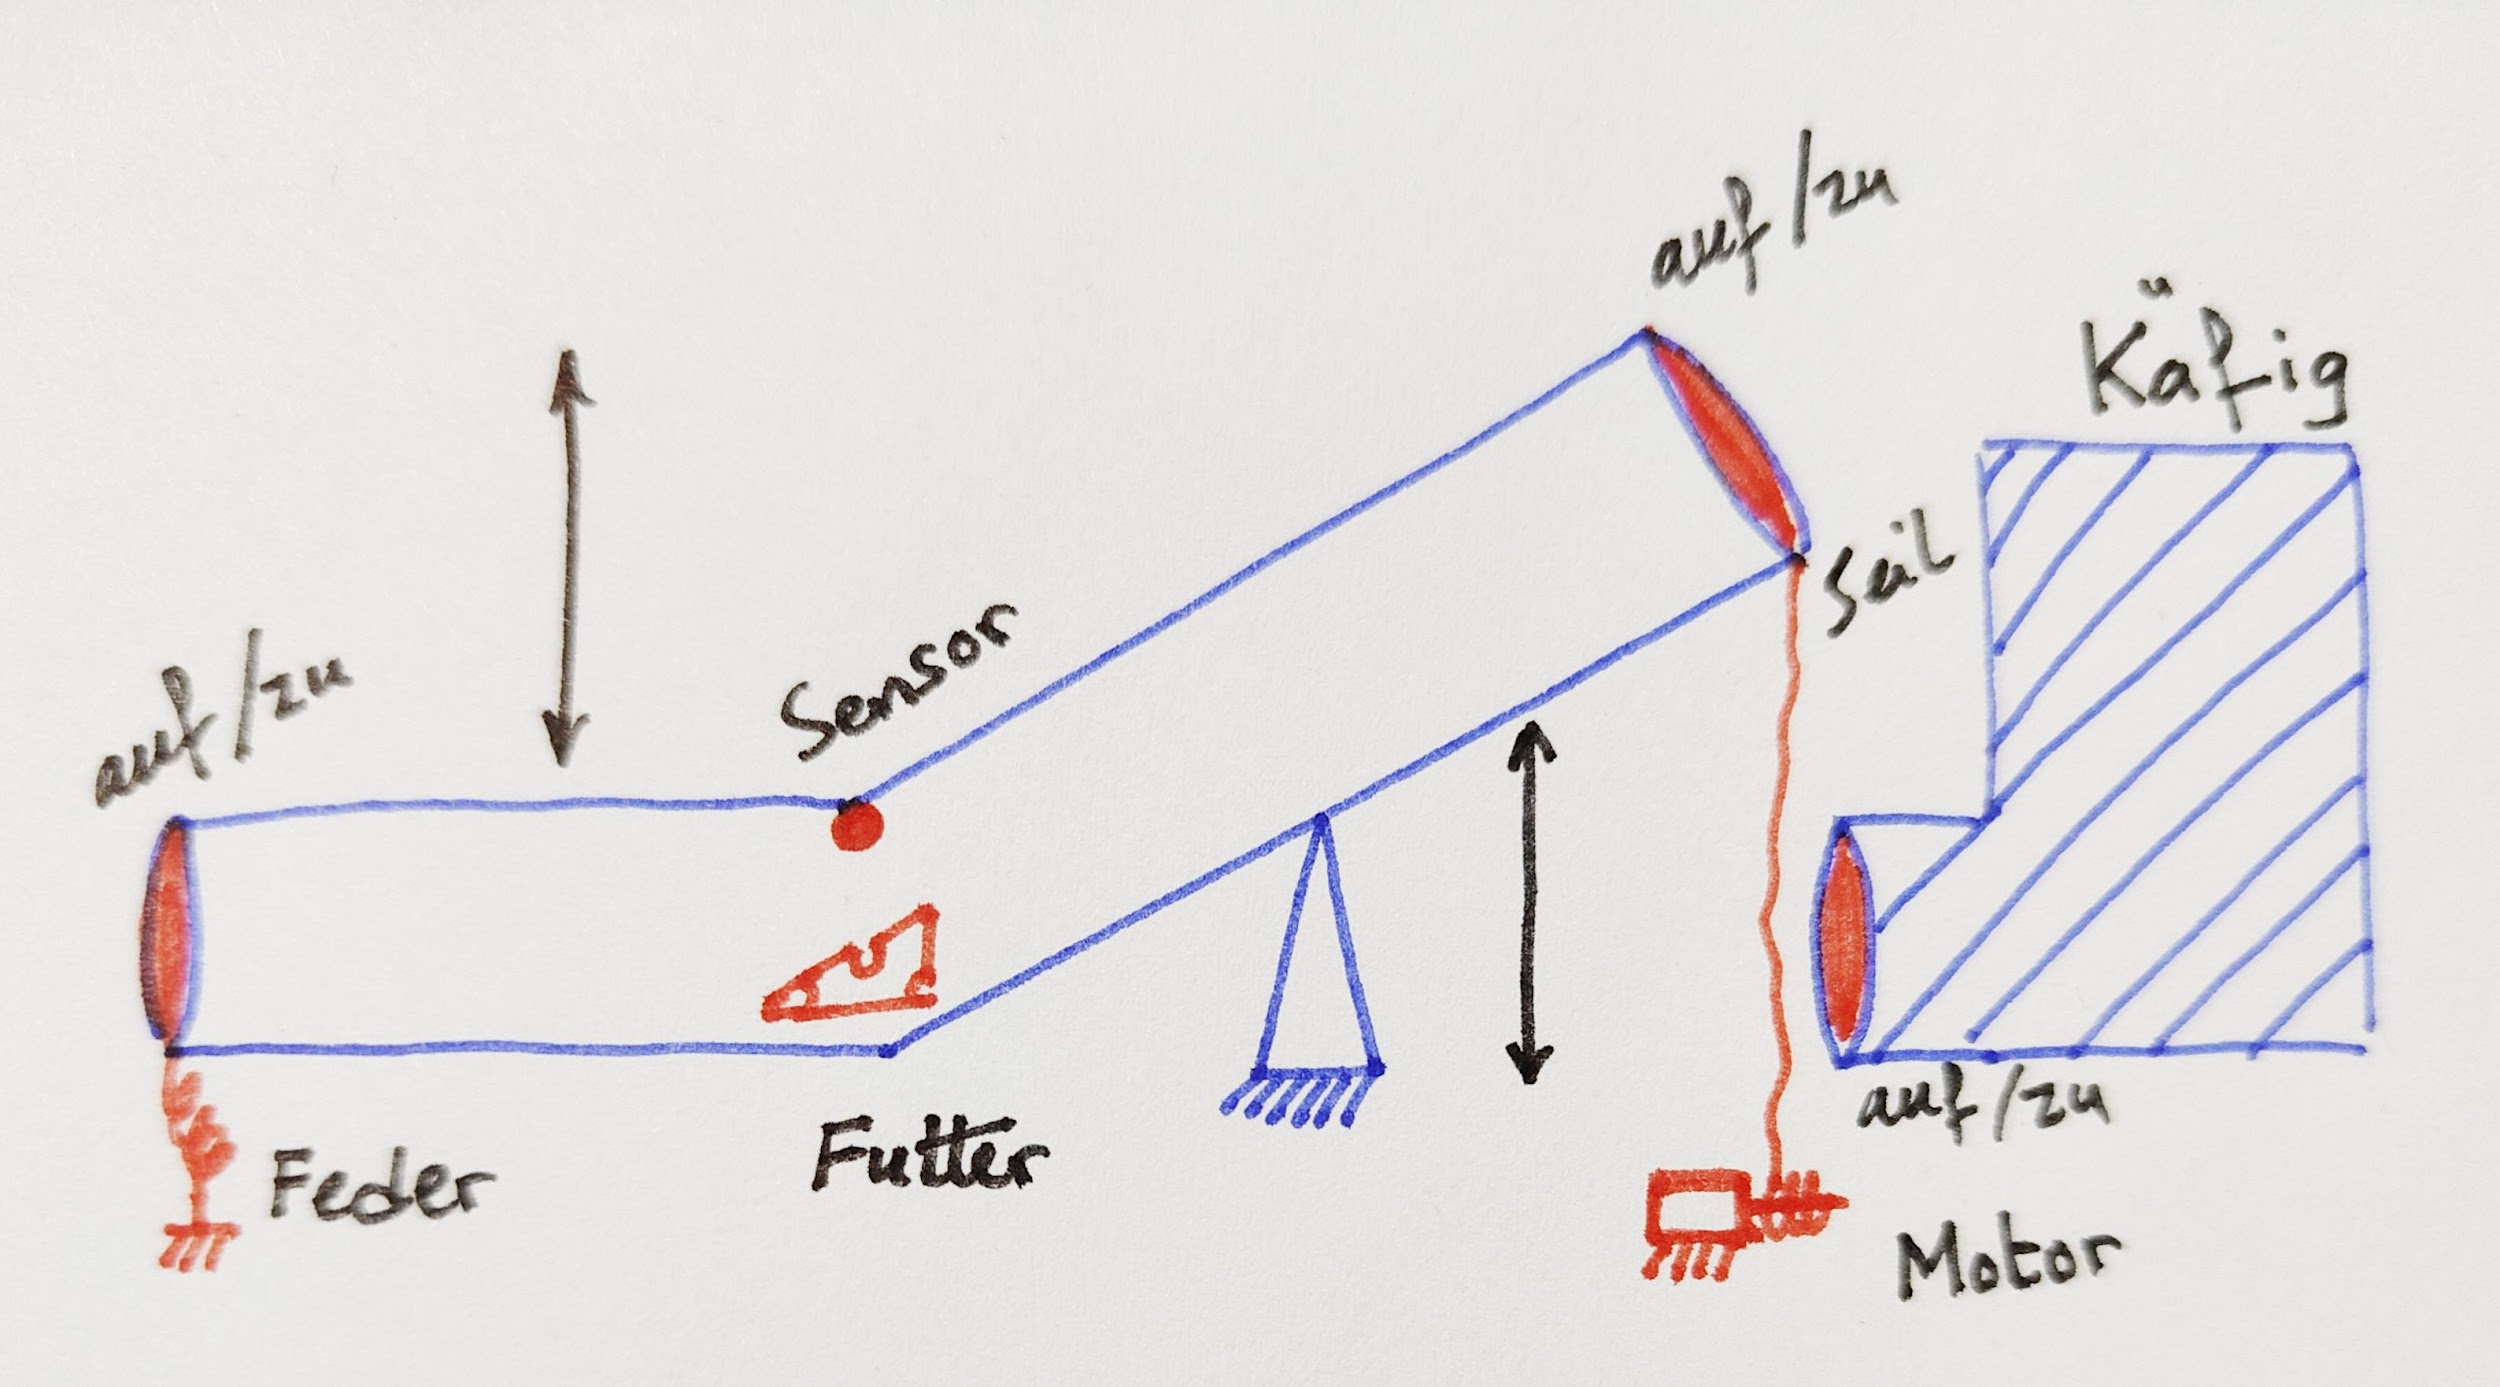 auf/zu
Käfig
Seil
Sensor
auf/zu
auf/zu
Futter
Feder
Motor